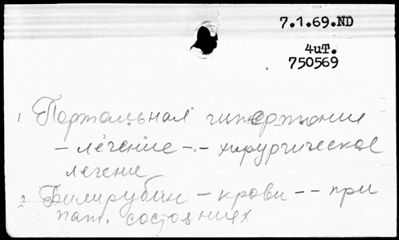 7.1.69.ND
4ит.
750569
1 Портальная гипертония
- лечение -.- хирургическое
лечение
2 Билирубин - крови -- при
пат. состояниях